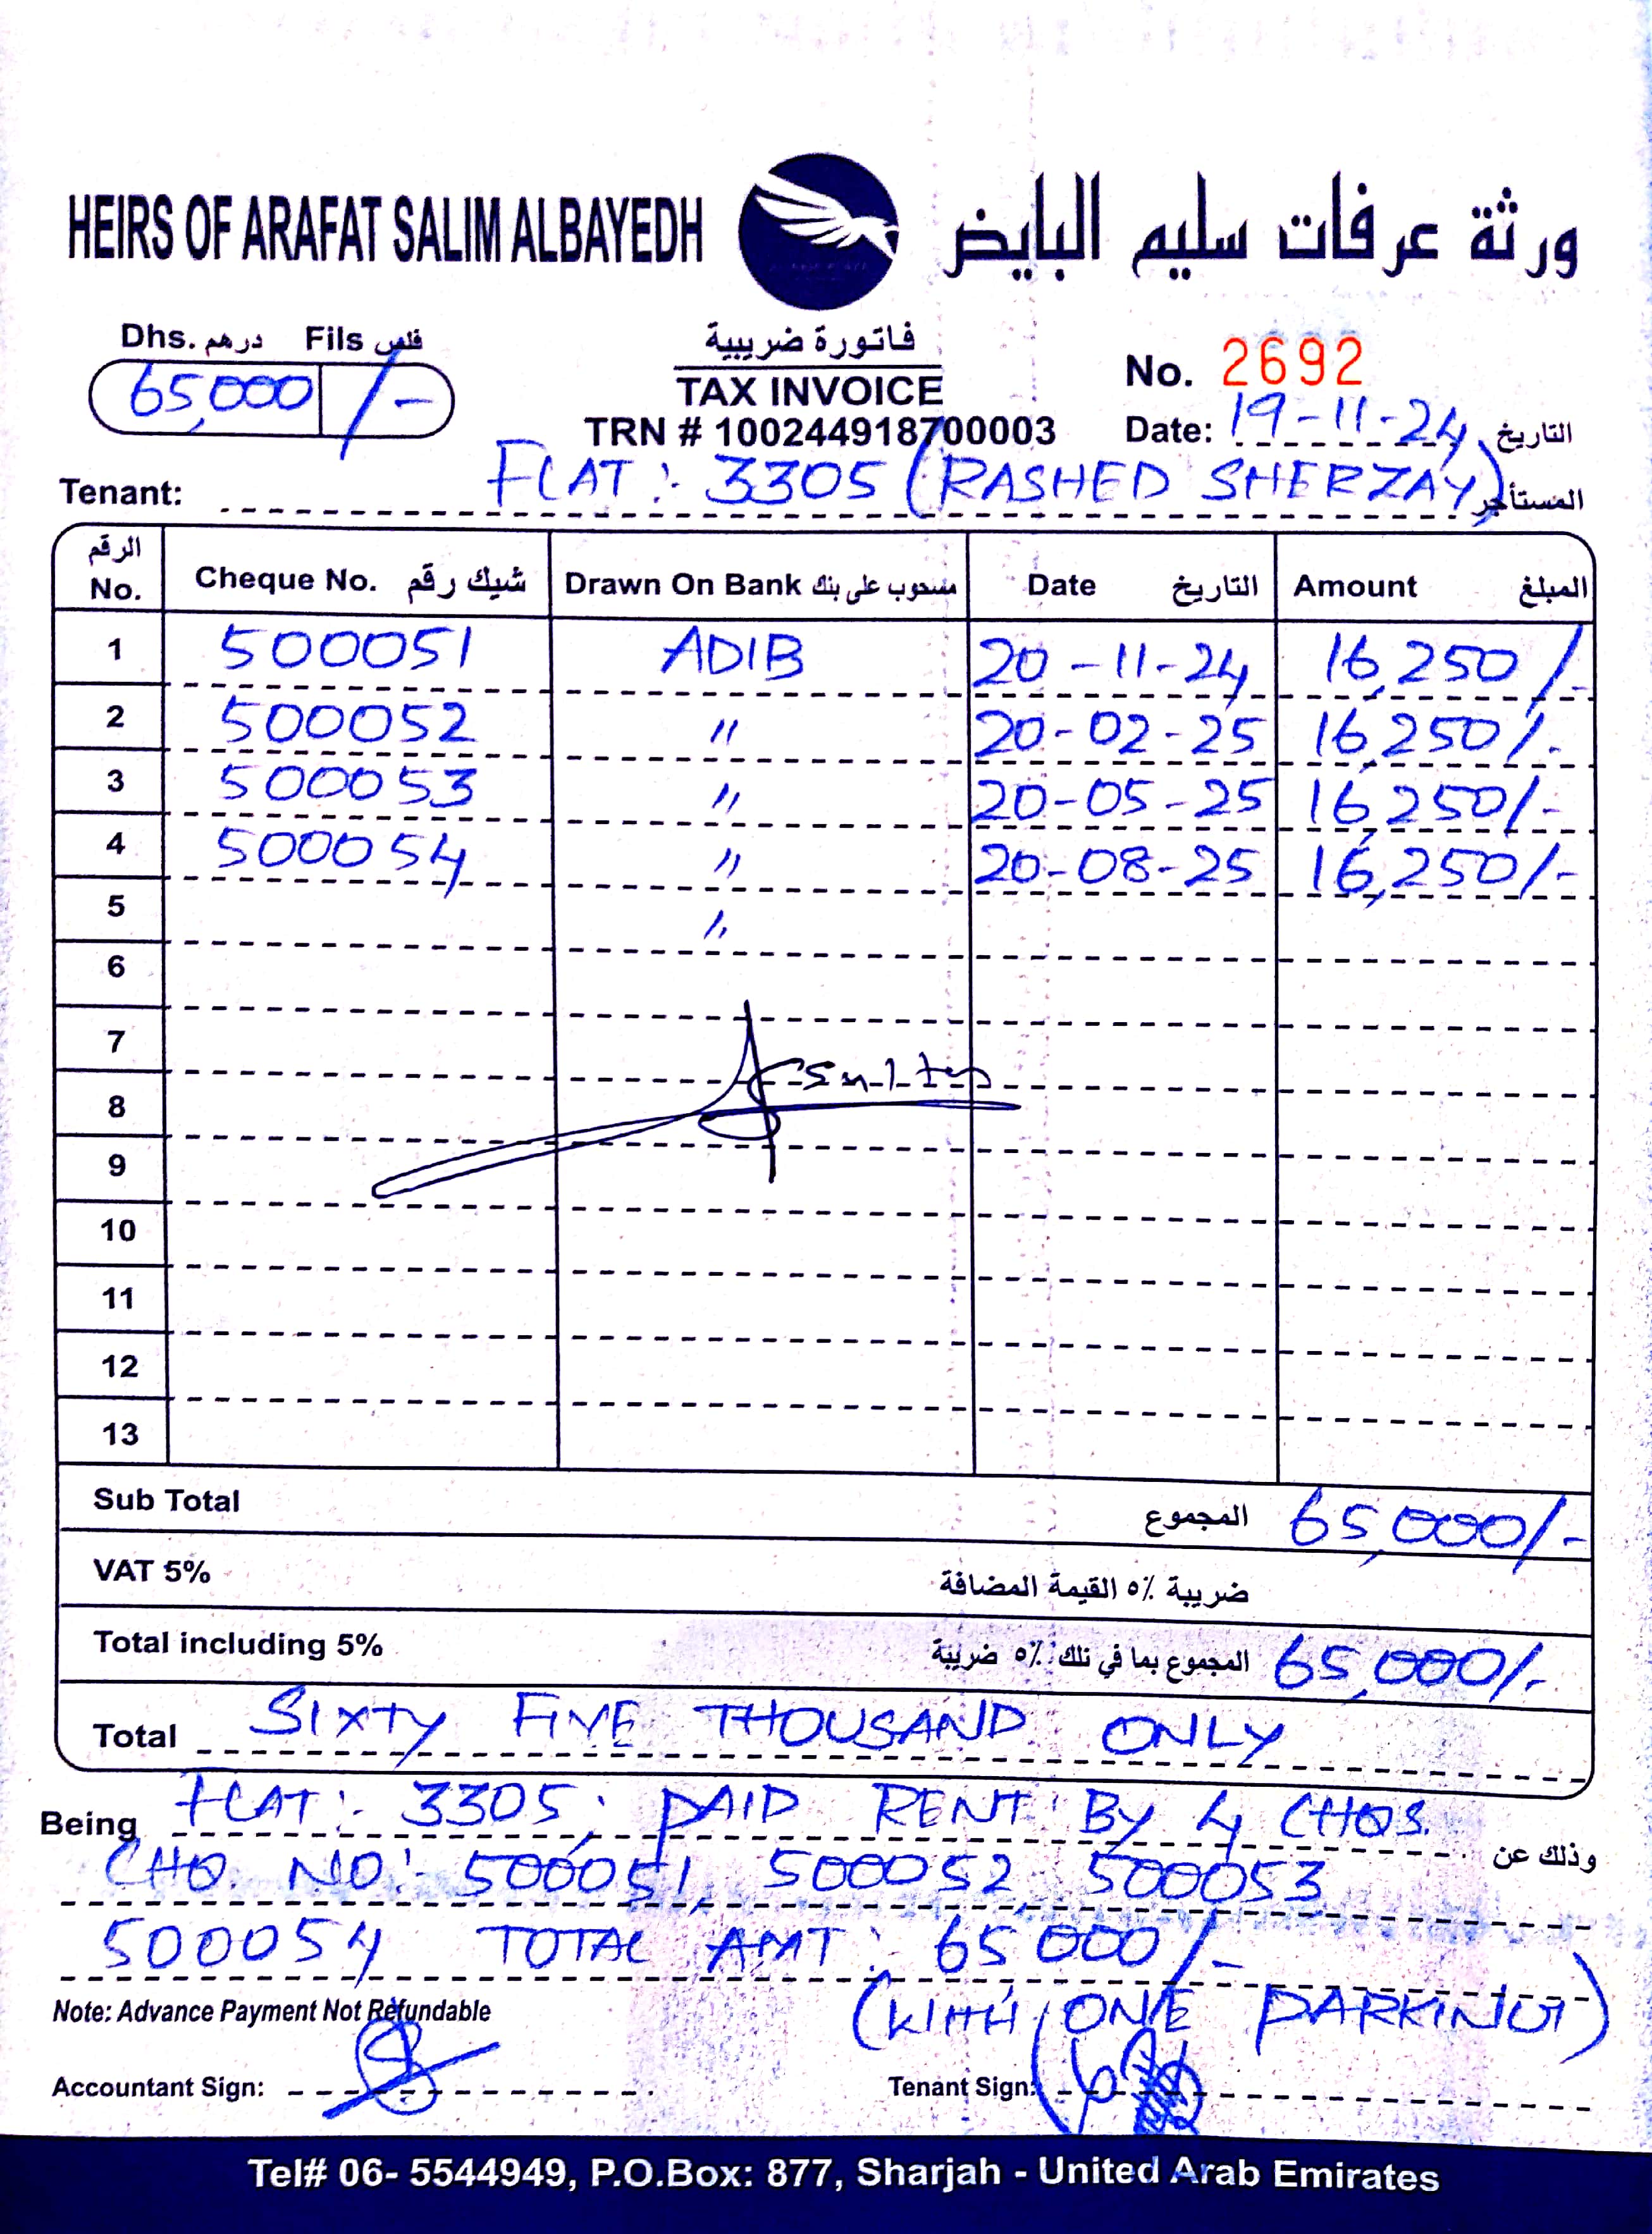 HEIRS OF ARAFAT SALIM ALBAYEDH ورثة عرفات سليم البايض
Dhs. درهم Fils فلس
65,000 /-
فاتورة ضريبية
TAX INVOICE
TRN # 100244918700003
No. 2692
Date: 19-11-24 التاريخ
Tenant: FLAT:- 3305 (RASHED SHERZAY) المستأجر
الرقم No. Cheque No. شيك رقم Drawn On Bank مسحوب على بنك Date التاريخ Amount المبلغ
1 500051 ADIB 20-11-24 16,250/-
2 500052 " 20-02-25 16,250/-
3 500053 " 20-05-25 16,250/-
4 500054 " 20-08-25 16,250/-
5 "
6
7
8
9
10
11
12
13
Sub Total المجموع 65,000/-
VAT 5% ضريبة ٥٪ القيمة المضافة
Total including 5% المجموع بما في ذلك ٥٪ ضريبة 65,000/-
Total SIXTY FIVE THOUSAND ONLY
Being FLAT:- 3305, PAID RENT BY 4 CHQS. وذلك عن
CHQ. NO:- 500051, 500052, 500053
500054 TOTAL AMT: 65000/-
Note: Advance Payment Not Refundable (WITH ONE PARKING)
Accountant Sign: Tenant Sign:
Tel# 06- 5544949, P.O.Box: 877, Sharjah - United Arab Emirates